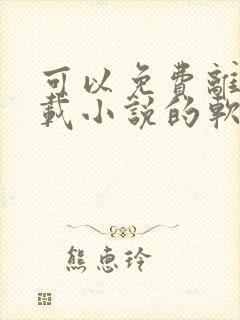 可以免費離
載小說的軟
熊惠玲